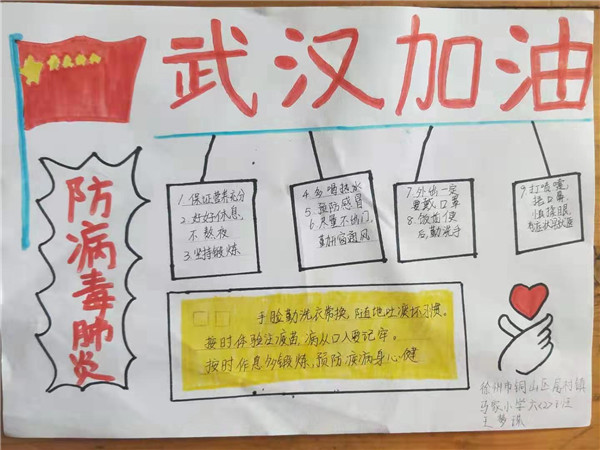 武汉加油
防病毒肺炎
1.保证营养充分
2.好好休息
不熬夜
3.坚持锻炼
4.多喝热水
5.预防感冒
6.尽量不出门,
7.外出一定
要戴口罩
8.饭前便
后勤洗手
9.打喷嚏
捂口鼻
手脸勤洗衣常换,随地吐痰坏习惯。
按时体验注疫苗,病从口入要记牢。
按时作息多锻炼,预防疾病身心健
徐州市铜山区 村镇
马家小学六